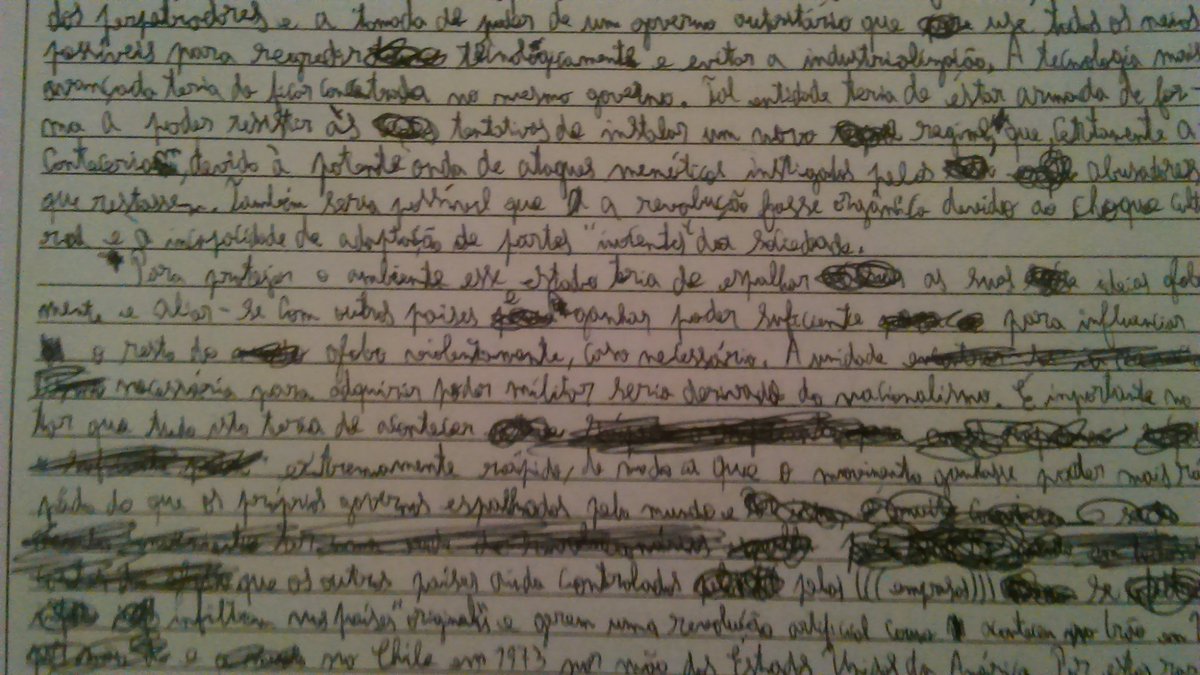 dos perpetradores e a tomada de poder de um governo autoritário que use todos os meios
possíveis para regredir tecnologicamente e evitar a industrialização. A tecnologia mais
avançada teria de ficar concentrada no mesmo governo. Tal entidade teria de estar armada de for-
ma a poder resistir às tentativas de instalar um novo regime, que certamente a
conteceria, devido à potente onda de ataques menéticos instigados pelos abusadores
que restassem. Também seria possível que a revolução fosse orgânica devido ao choque cultu
ral e a incapacidade de adaptação de partes "inocentes" da sociedade.
Para proteger o ambiente esse estado teria de espalhar as suas ideias
mente e aliar-se com outros países e ganhar poder suficiente para influenciar
o resto do globo violentamente, caso necessário. A unidade
necessária para adquirir poder militar seria derivada do nacionalismo. É importante no
tar que tudo isto teria de acontecer
extremamente rápido, de modo a que o movimento ganhasse poder mais rá
pido do que os próprios governos espalhados pelo mundo e
que os outros países ainda controlados pelos (((empresas))) se
infiltrem nos países "originais" e gerem uma revolução artificial como em
e no Chile em 1973 por mão dos Estados Unidos da América. Por